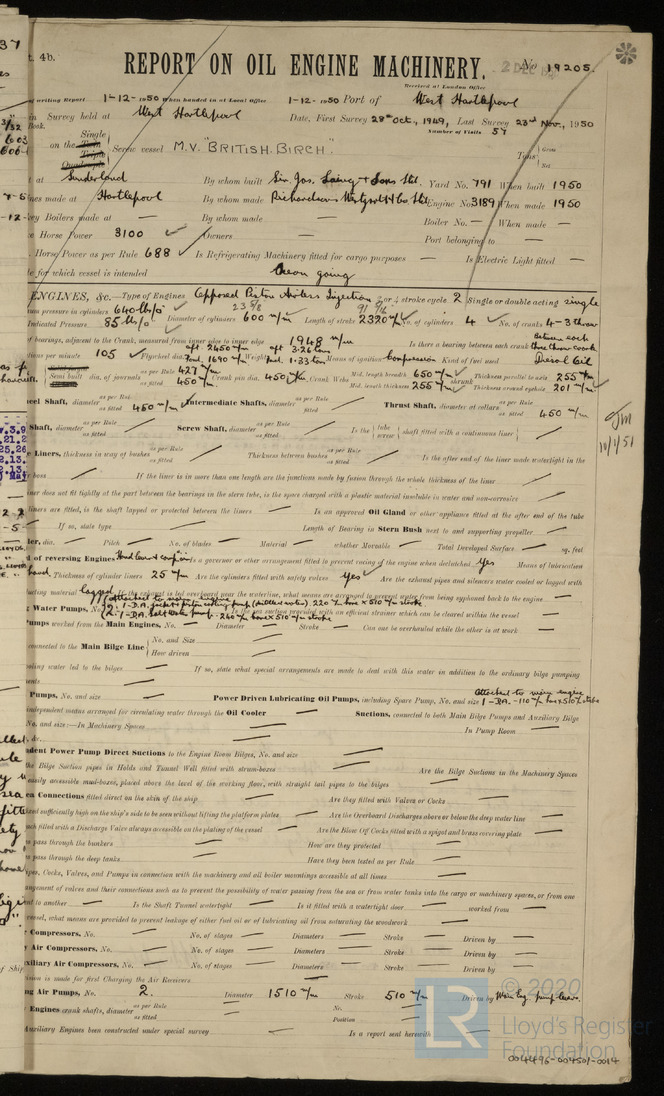 t. 4b.
REPORT ON OIL ENGINE MACHINERY.
No 19205.
2 DEC
Received at London Office
of writing Report 1-12-1950 When handed in at Local Office 1-12-1950 Port of West Hartlepool
in Survey held at West Hartlepool Date, First Survey 28th Oct., 1949, Last Survey 23rd Nov., 1950
Book. Number of Visits 57
on the Single Triple Quadruple Screw vessel M.V. "BRITISH BIRCH". Tons Gross Net
t at Sunderland By whom built Sir Jas. Laing & Sons Ltd. Yard No. 791 When built 1950
nes made at Hartlepool By whom made Richardsons Westgarth & Co. Ltd. Engine No. 3189 When made 1950
ey Boilers made at — By whom made — Boiler No. — When made —
e Horse Power 3100 Owners — Port belonging to —
. Horse Power as per Rule 688 Is Refrigerating Machinery fitted for cargo purposes — Is Electric Light fitted —
te for which vessel is intended Ocean going
ENGINES, &c.—Type of Engines Opposed Piston Airless Injection 2 or 4 stroke cycle 2 Single or double acting single
um pressure in cylinders 640 lbs/□" Diameter of cylinders 600 m/m 23 5/8 Length of stroke 2320 m/m 91 5/16 No. of cylinders 4 No. of cranks 4 - 3 throw
Indicated Pressure 85 lbs/□"
of bearings, adjacent to the Crank, measured from inner edge to inner edge 1948 m/m Is there a bearing between each crank Between each three throw crank
tions per minute 105 Flywheel dia. aft 2450 m/m Ford. 1690 m/m Weight aft 3.26 tons Ford. 1.33 tons Means of ignition Compression Kind of fuel used Diesel Oil
Solid forged Semi built dia. of journals as per Rule 427 m/m as fitted 450 m/m Crank pin dia. 450 m/m Crank Webs Mid. length breadth 650 m/m Mid. length thickness 255 m/m shrunk Thickness parallel to axis 255 m/m Thickness around eyehole 201 m/m
eel Shaft, diameter as per Rule as fitted 450 m/m Intermediate Shafts, diameter as per Rule as fitted Thrust Shaft, diameter at collars as per Rule as fitted 450 m/m
Shaft, diameter as per Rule as fitted Screw Shaft, diameter as per Rule as fitted Is the tube screw shaft fitted with a continuous liner
JM 10/1/51
e Liners, thickness in way of bushes as per Rule as fitted Thickness between bushes as per Rule as fitted Is the after end of the liner made watertight in the
boss — If the liner is in more than one length are the junctions made by fusion through the whole thickness of the liner
iner does not fit tightly at the part between the bearings in the stern tube, is the space charged with a plastic material insoluble in water and non-corrosive
liners are fitted, is the shaft lapped or protected between the liners — Is an approved Oil Gland or other appliance fitted at the after end of the tube
If so, state type Length of Bearing in Stern Bush next to and supporting propeller
ler, dia. Pitch No. of blades Material whether Moveable Total Developed Surface sq. feet
d of reversing Engines Is a governor or other arrangement fitted to prevent racing of the engine when declutched Yes Means of lubrication
Thickness of cylinder liners 25 m/m Are the cylinders fitted with safety valves Yes Are the exhaust pipes and silencers water cooled or lagged with
ucting material lagged If the exhaust is led overboard near the waterline, what means are arranged to prevent water from being syphoned back to the engine —
g Water Pumps, No. Attached to main engine 2: 1-D.A. jacket & piston cooling pump (distilled water) 220 m/m bore x 510 m/m stroke
1-D.A. Salt water pump 240 m/m bore x 510 m/m stroke Is the sea suction provided with an efficient strainer which can be cleared within the vessel
Pumps worked from the Main Engines, No. Diameter Stroke Can one be overhauled while the other is at work
connected to the Main Bilge Line No. and Size How driven
oling water led to the bilges If so, state what special arrangements are made to deal with this water in addition to the ordinary bilge pumping
ents
Pumps, No. and size Power Driven Lubricating Oil Pumps, including Spare Pump, No. and size Attached to main engine 1-D.A. - 110 m/m bore x 510 m/m stroke
independent means arranged for circulating water through the Oil Cooler Suctions, connected to both Main Bilge Pumps and Auxiliary Bilge
No. and size:—In Machinery Spaces In Pump Room
, &c.
dent Power Pump Direct Suctions to the Engine Room Bilges, No. and size
the Bilge Suction pipes in Holds and Tunnel Well fitted with strum-boxes Are the Bilge Suctions in the Machinery Spaces
easily accessible mud-boxes, placed above the level of the working floor, with straight tail pipes to the bilges
ea Connections fitted direct on the skin of the ship Are they fitted with Valves or Cocks
xed sufficiently high on the ship's side to be seen without lifting the platform plates Are the Overboard Discharges above or below the deep water line
ach fitted with a Discharge Valve always accessible on the plating of the vessel Are the Blow Off Cocks fitted with a spigot and brass covering plate
s pass through the bunkers How are they protected
s pass through the deep tanks Have they been tested as per Rule
ipes, Cocks, Valves, and Pumps in connection with the machinery and all boiler mountings accessible at all times
angement of valves and their connections such as to prevent the possibility of water passing from the sea or from water tanks into the cargo or machinery spaces, or from one
nt to another Is the Shaft Tunnel watertight Is it fitted with a watertight door worked from
vessel, what means are provided to prevent leakage of either fuel oil or of lubricating oil from saturating the woodwork
Compressors, No. No. of stages Diameters Stroke Driven by
y Air Compressors, No. No. of stages Diameters Stroke Driven by
xiliary Air Compressors, No. No. of stages Diameters Stroke Driven by
vision is made for first Charging the Air Receivers
ng Air Pumps, No. 2. Diameter 1510 m/m Stroke 510 m/m Driven by Main Eng. pump levers.
Engines crank shafts, diameter as per Rule as fitted No. Position
Auxiliary Engines been constructed under special survey Is a report sent herewith
LR © 2020 Lloyd's Register Foundation
004496-004501-0014